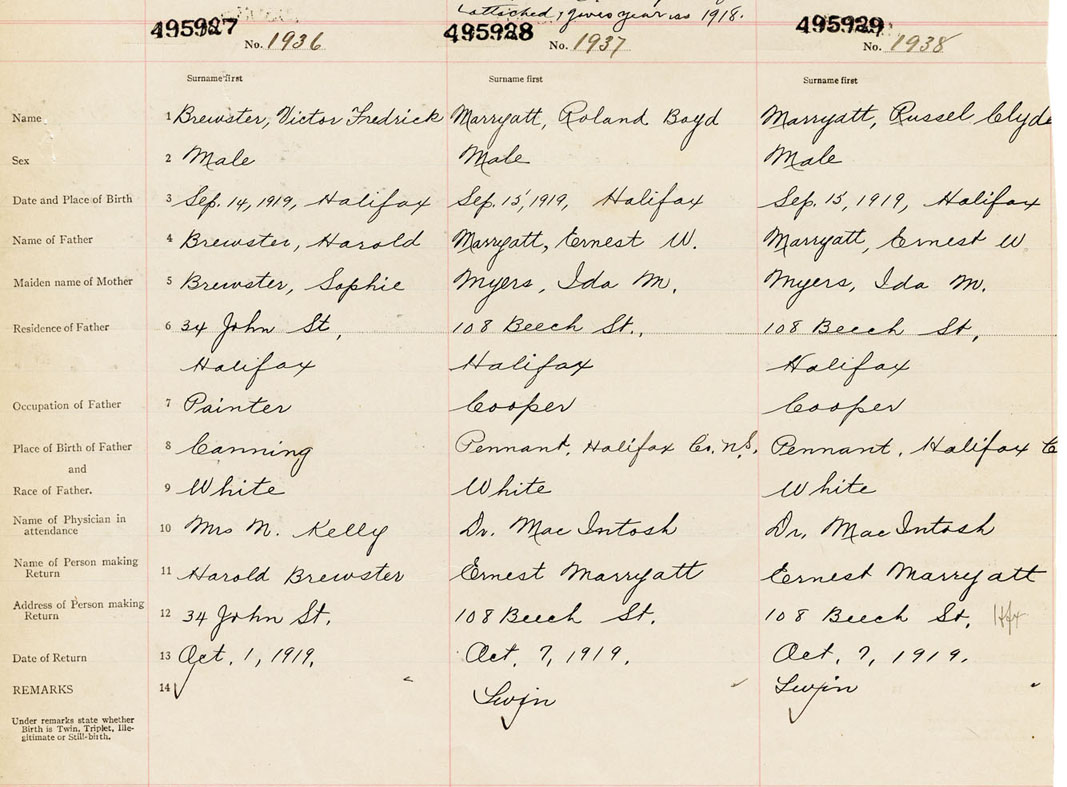 attached, gives year as 1918.
495927 495928 495929
No. 1936 No. 1937 No. 1938
Surname first Surname first Surname first
Name 1 Brewster, Victor Fredrick Marryatt, Roland Boyd Marryatt, Russel Clyde
Sex 2 Male Male Male
Date and Place of Birth 3 Sep. 14, 1919, Halifax Sep. 15, 1919, Halifax Sep. 15, 1919, Halifax
Name of Father 4 Brewster, Harold Marryatt, Ernest W. Marryatt, Ernest W
Maiden name of Mother 5 Brewster, Sophie Myers, Ida M. Myers, Ida M.
Residence of Father 6 34 John St, 108 Beech St., 108 Beech St,
Halifax Halifax Halifax
Occupation of Father 7 Painter Cooper Cooper
Place of Birth of Father 8 Canning Pennant, Halifax Co. N.S. Pennant, Halifax C
and
Race of Father. 9 White White White
Name of Physician in
attendance 10 Mrs N. Kelly Dr. MacIntosh Dr. MacIntosh
Name of Person making
Return 11 Harold Brewster Ernest Marryatt Ernest Marryatt
Address of Person making
Return 12 34 John St. 108 Beech St. 108 Beech St. Hfx
Date of Return 13 Oct. 1, 1919. Oct. 7, 1919. Oct. 7, 1919.
REMARKS 14 Twin Twin
Under remarks state whether
Birth is Twin, Triplet, Ille-
gitimate or Still-birth.